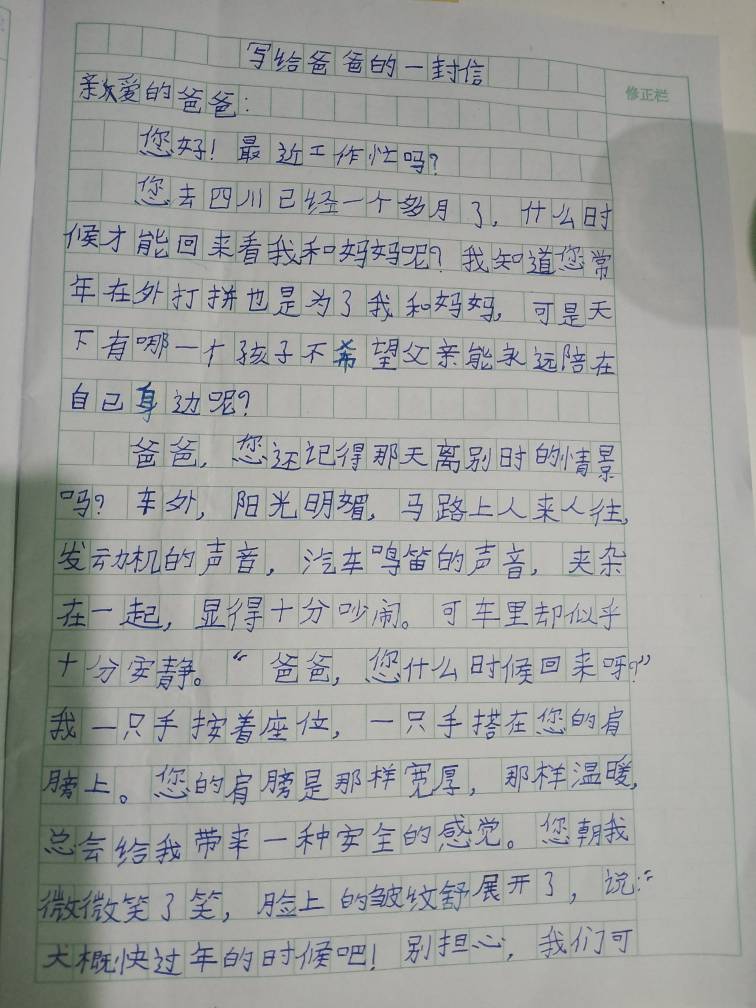 写给爸爸的一封信
修正栏
亲爱的爸爸:
您好！最近工作忙吗？
您去四川已经一个多月了，什么时
候才能回来看我和妈妈呢？我知道您常
年在外打拼也是为了我和妈妈，可是天
下有哪一个孩子不希望父亲能永远陪在
自己身边呢？
爸爸，您还记得那天离别时的情景
吗？车外，阳光明媚，马路上人来人往，
发动机的声音，汽车鸣笛的声音，夹杂
在一起，显得十分吵闹。可车里却似乎
十分安静。“爸爸，您什么时候回来呀？”
我一只手按着座位，一只手搭在您的肩
膀上。您的肩膀是那样宽厚，那样温暖，
总会给我带来一种安全的感觉。您朝我
微微笑了笑，脸上的皱纹舒展开了，说：“
大概快过年的时候吧！别担心，我们可